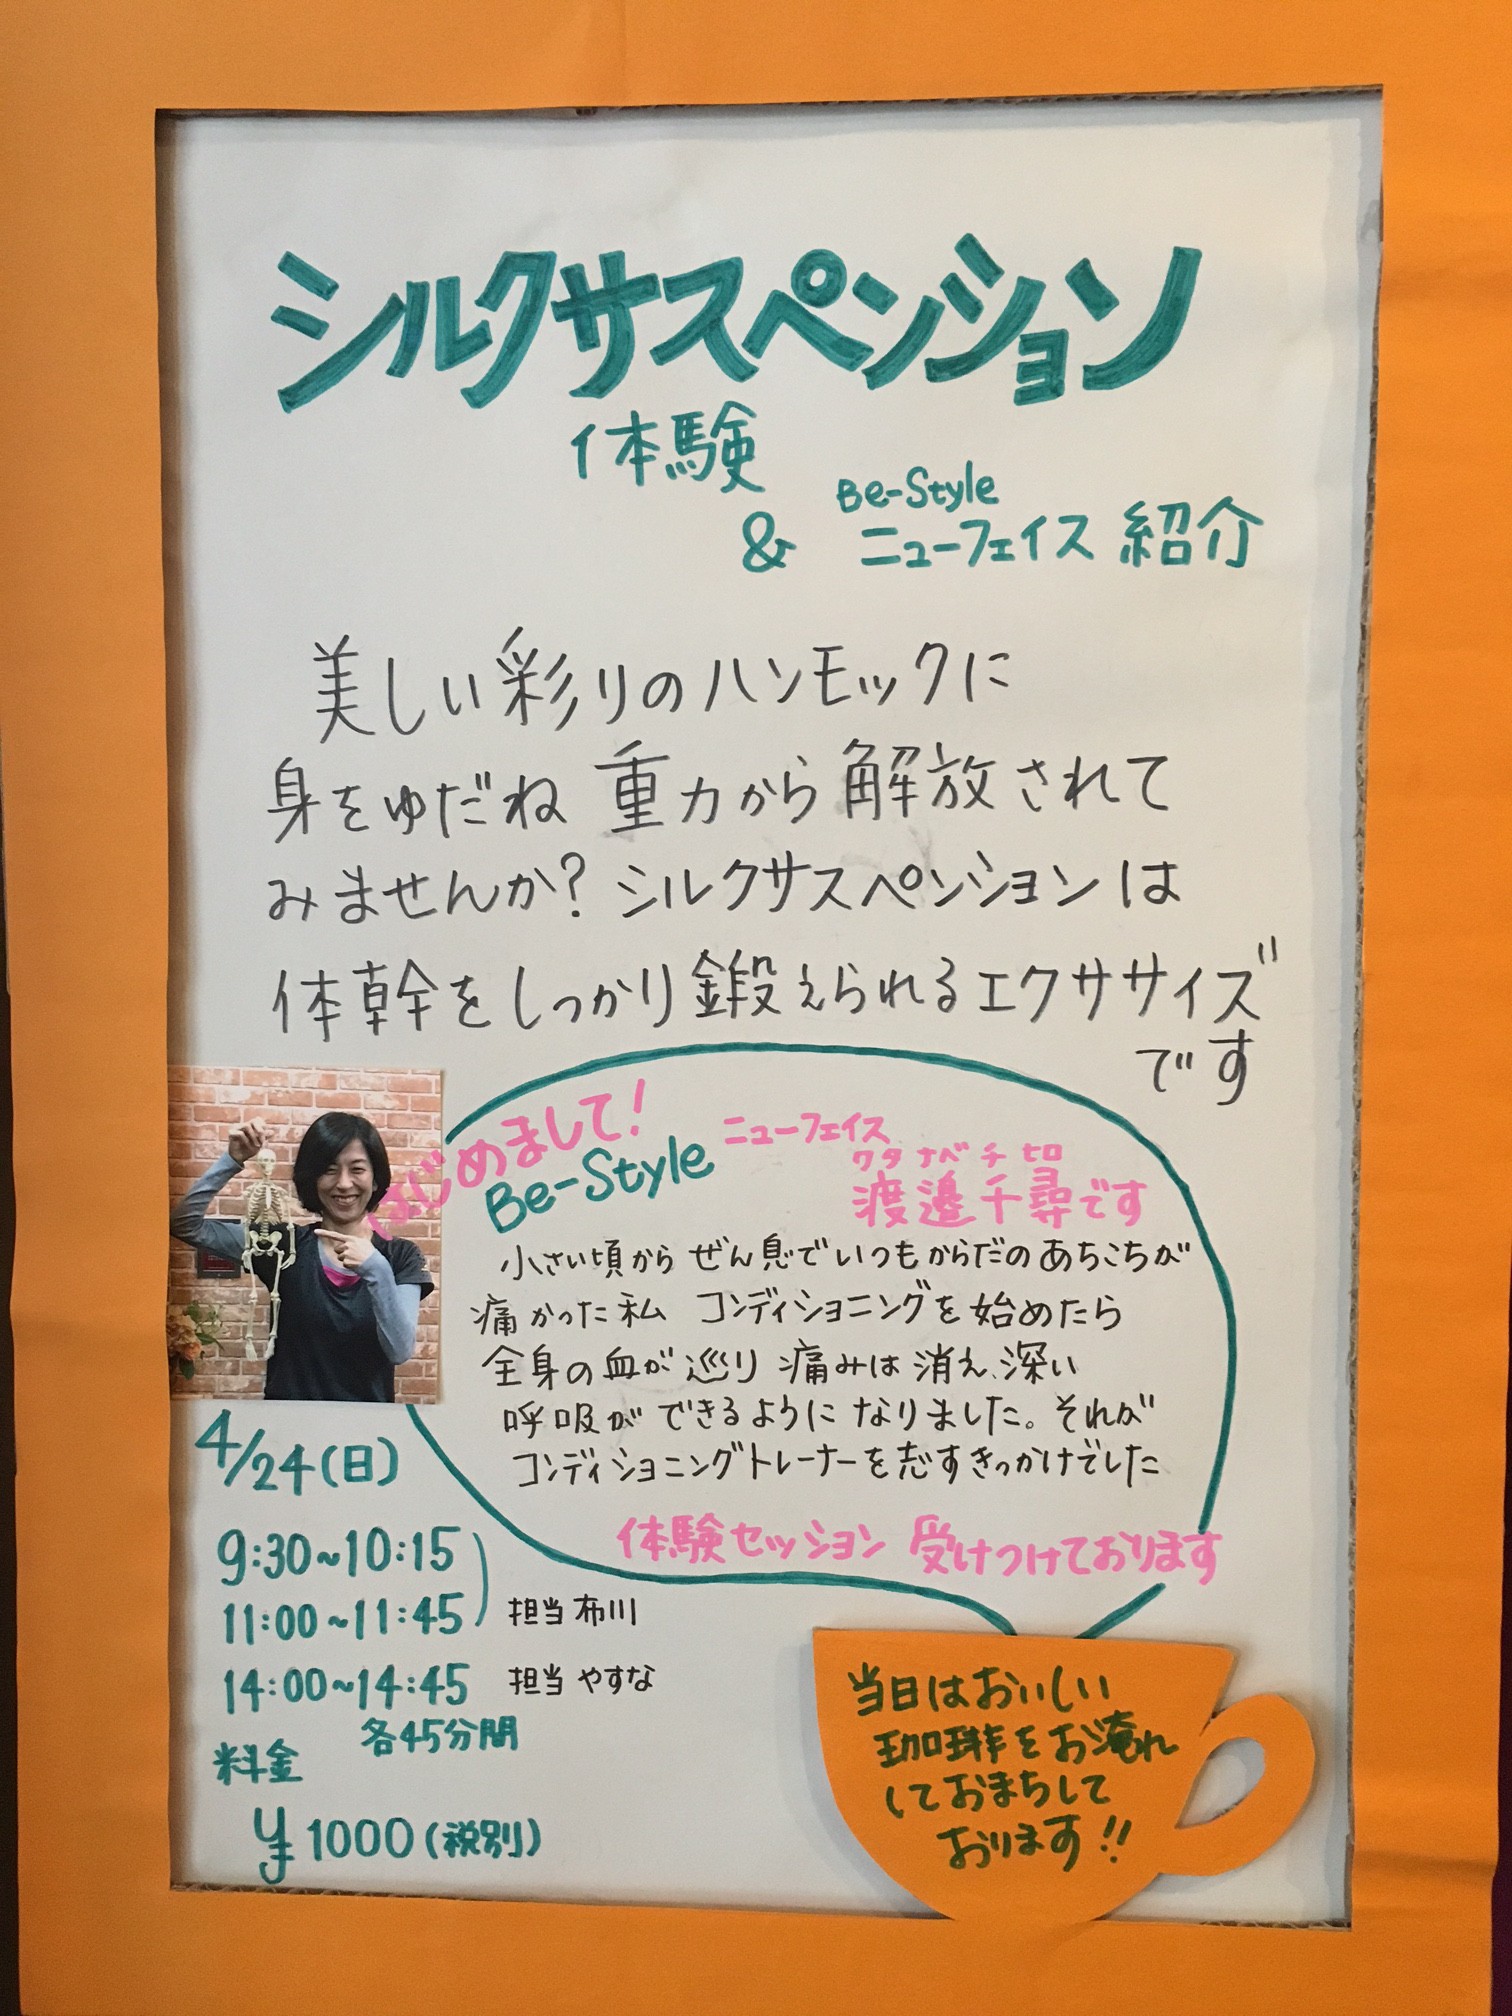 シルクサスペンション
体験
& Be-Style
ニューフェイス 紹介
美しい彩りのハンモックに
身をゆだね 重力から解放されて
みませんか? シルクサスペンションは
体幹をしっかり鍛えられるエクササイズ
です
はじめまして!
Be-Style ニューフェイス
ワタナベチヒロ
渡邉千尋です
小さい頃から ぜん息でいつもからだのあちこちが
痛かった私 コンディショニングを始めたら
全身の血が巡り 痛みは消え、深い
呼吸ができるようになりました。それが
コンディショニングトレーナーを志すきっかけでした
体験セッション 受けつけております
4/24(日)
9:30~10:15
11:00~11:45 担当 布川
14:00~14:45 担当 やすな
各45分間
料金
¥1000(税別)
当日はおいしい
珈琲をお淹れ
しておまちして
おります!!